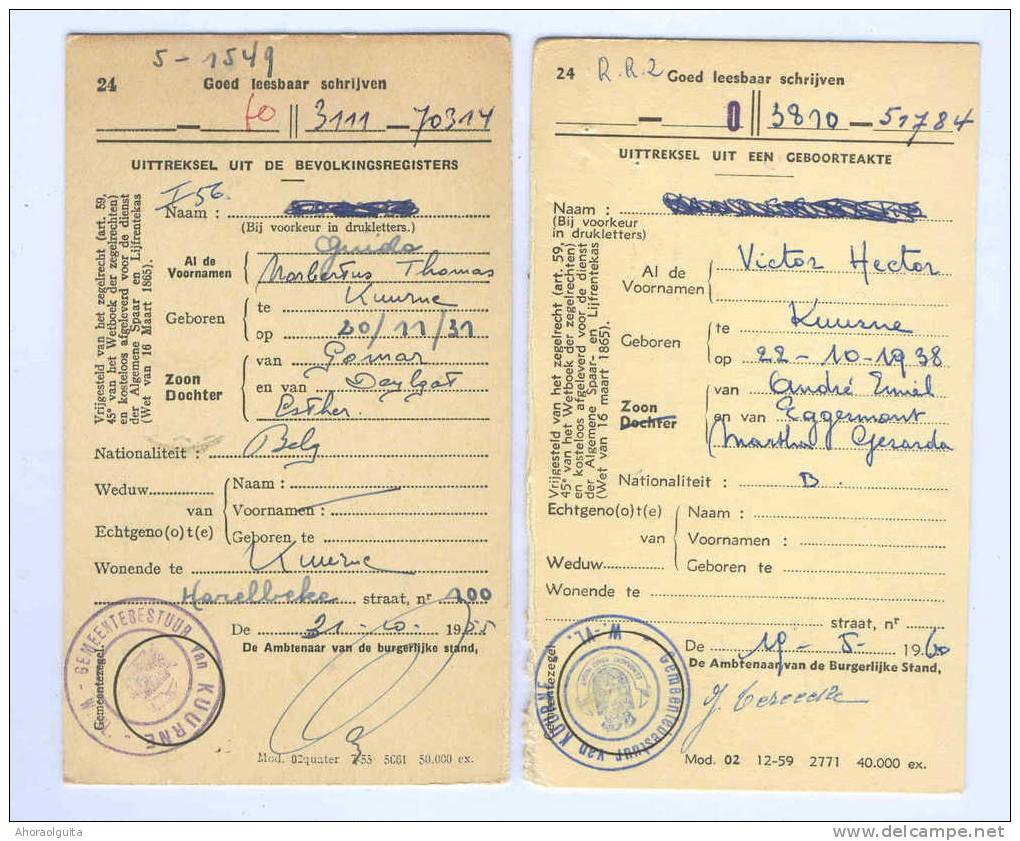 5 - 1549
24 Goed leesbaar schrijven
60 || 3111 - 70314
UITTREKSEL UIT DE BEVOLKINGSREGISTERS
I 56.
Naam :
(Bij voorkeur in drukletters.)
Guido
Al de Voornamen Norbertus Thomas
Geboren te Kuurne
op 20/11/31
Zoon Dochter van Gomar
en van Deylgat
Esther.
Nationaliteit : Belg
Weduw
van
Echtgeno(o)t(e)
Naam :
Voornamen :
Geboren te
Wonende te Kuurne
Harelbeke straat, nr 100
De 31 - 10 - 1955
De Ambtenaar van de burgerlijke stand,
Vrijgesteld van het zegelrecht (art. 59,
45° van het Wetboek der zegelrechten)
en kosteloos afgeleverd voor de dienst
der Algemene Spaar en Lijfrentekas
(Wet van 16 Maart 1865).
Gemeentezegel.
GEMEENTEBESTUUR van KUURNE
Mod. 02quater 7-55 5661 50.000 ex.
24 R.R.2 Goed leesbaar schrijven
0 || 3810 - 51784
UITTREKSEL UIT EEN GEBOORTEAKTE
Naam :
(Bij voorkeur
in drukletters)
Al de Voornamen Victor Hector
Geboren te Kuurne
op 22-10-1938
Zoon Dochter van André Emiel
en van Eggermont
Martha Gerarda
Nationaliteit : B.
Echtgeno(o)t(e)
van
Weduw
Naam :
Voornamen :
Geboren te
Wonende te
straat, nr
De 19 - 5 - 1960
De Ambtenaar van de Burgerlijke Stand,
Vrijgesteld van het zegelrecht (art. 59,
45° van het Wetboek der zegelrechten)
en kosteloos afgeleverd voor de dienst
der Algemene Spaar- en Lijfrentekas
(Wet van 16 maart 1865).
Gemeentezegel
Gemeentebestuur van KUURNE W.-Vl.
Mod. 02 12-59 2771 40.000 ex.
Ahoraolguita
http://www.delcampe.net